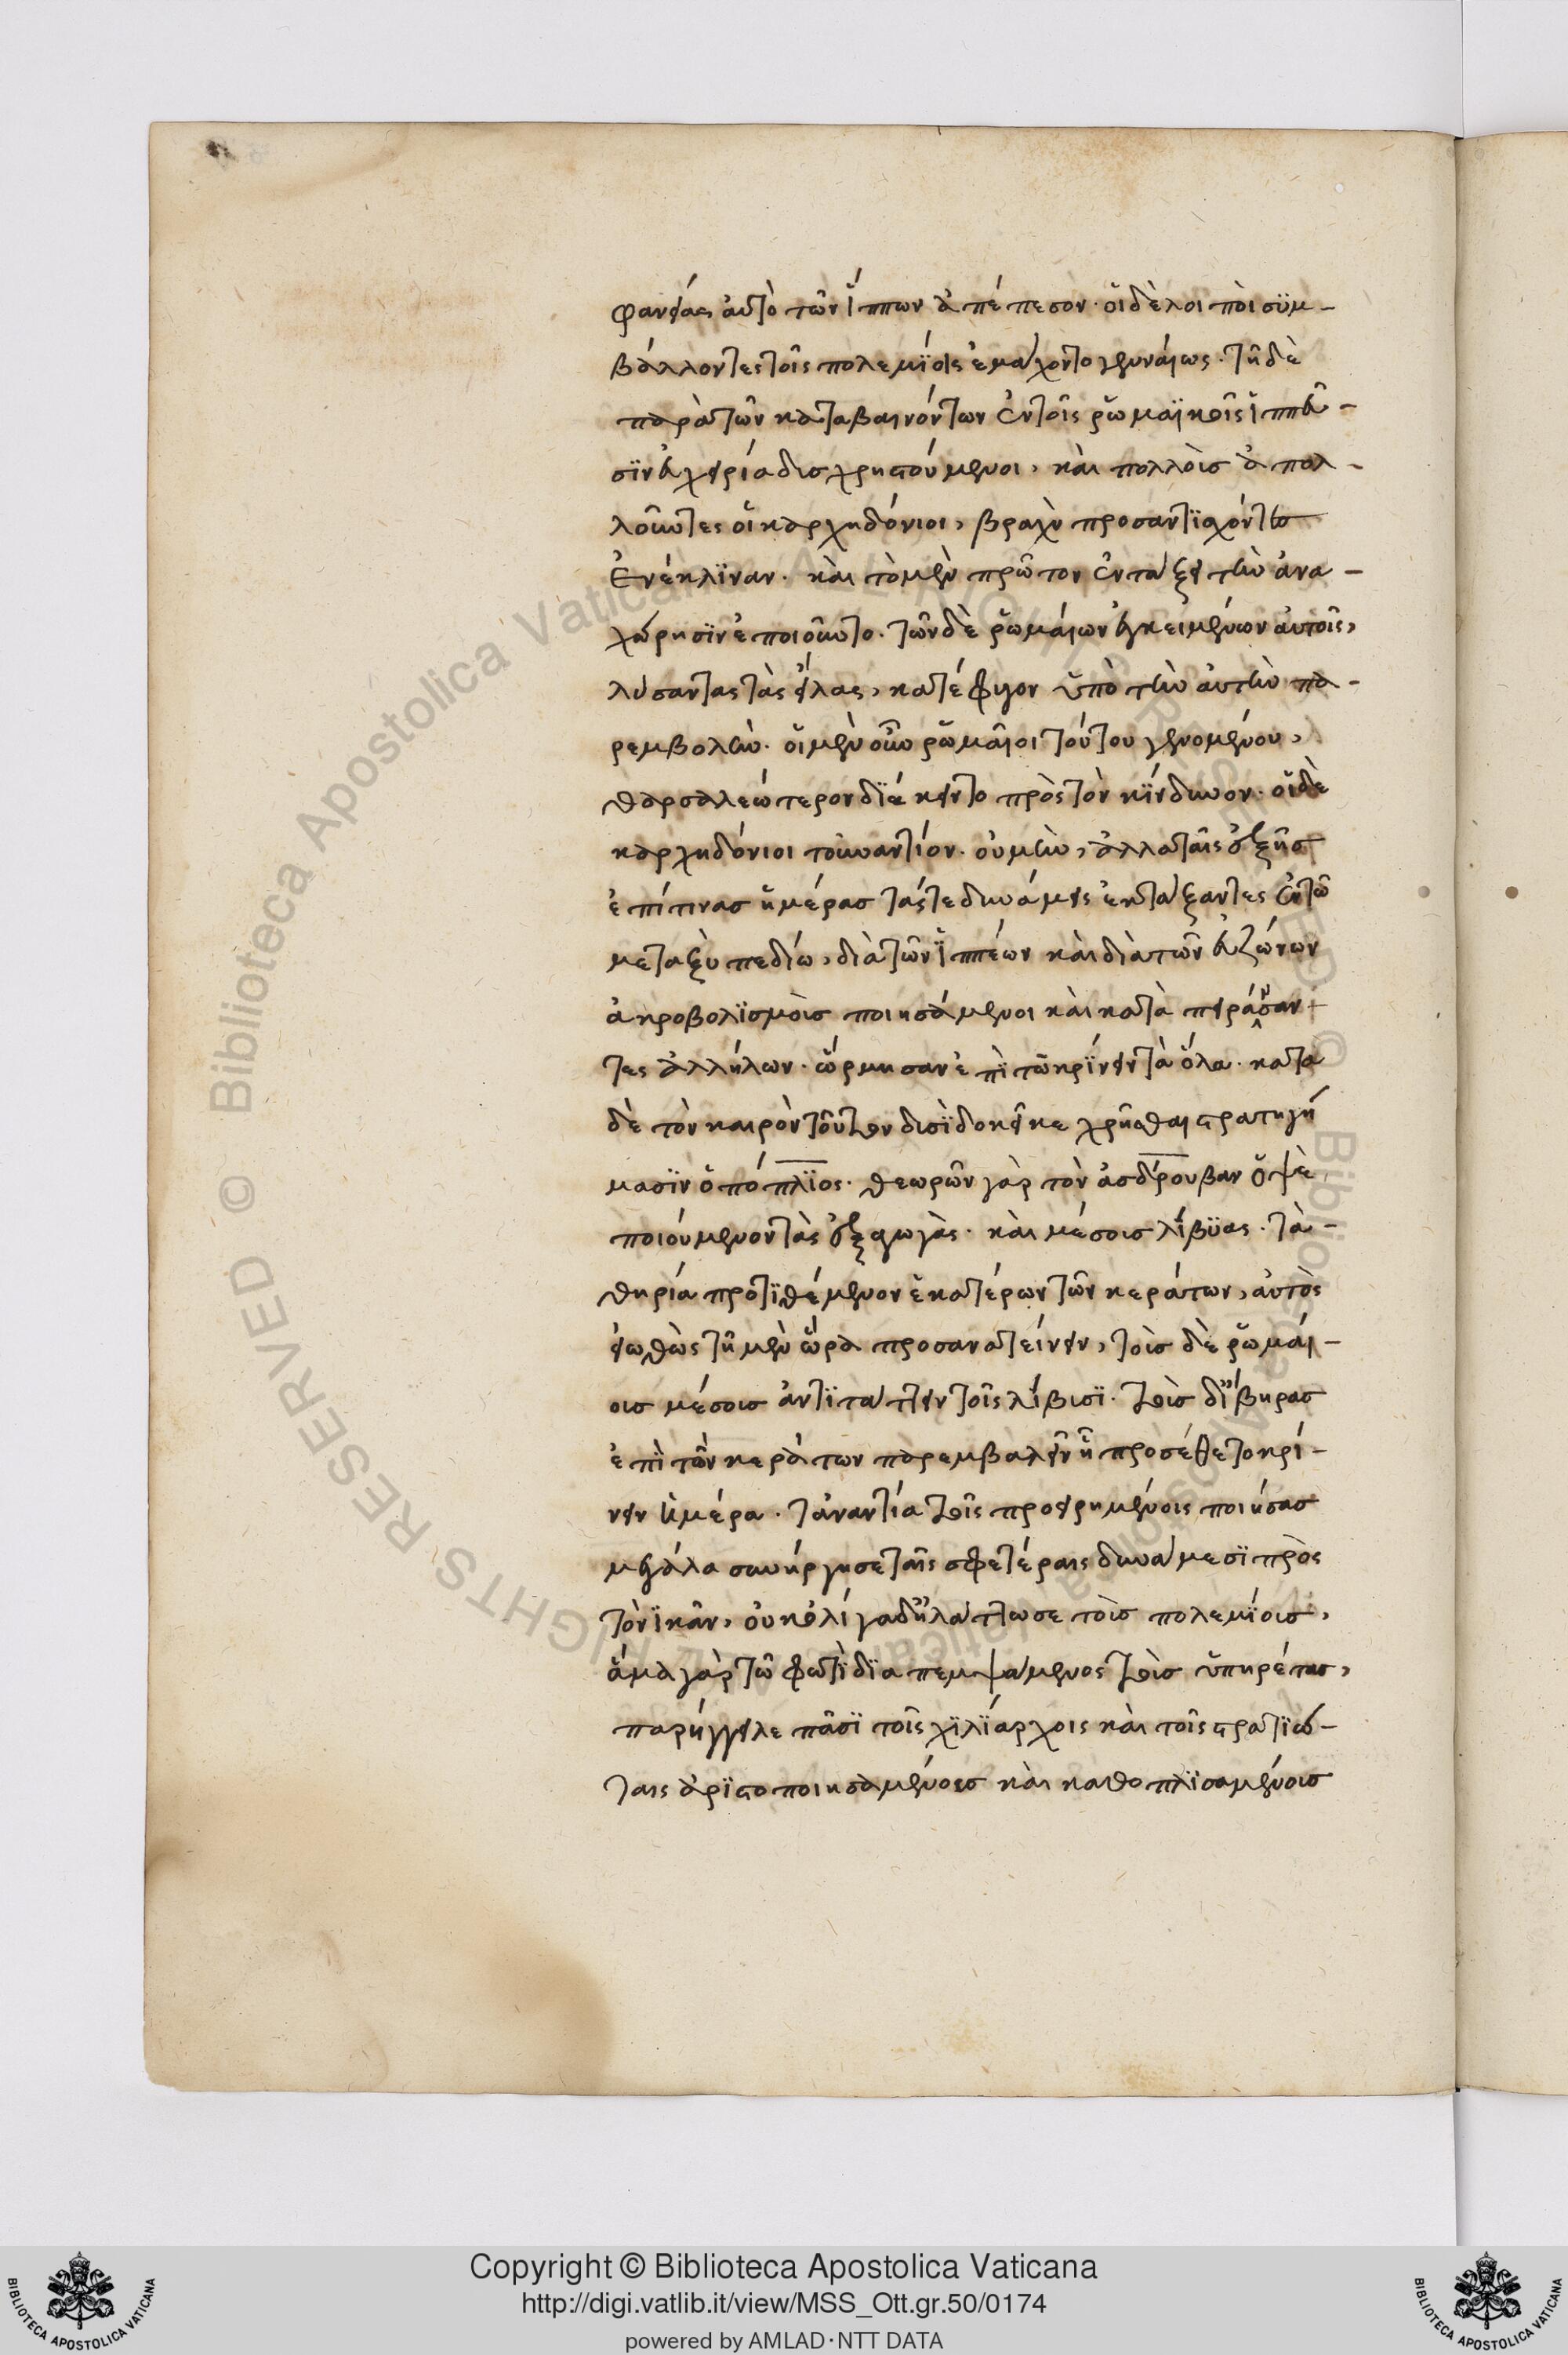 φανείας αὐτὸ τῶν ἵππων ἀπέπεσον· οἱ δὲ λοιποὶ συμ-
βάλλοντες τοῖς πολεμίοις ἐμάχοντο γενναίως· τῇ δὲ
παρὰ τῶν καταβαινόντων ἐν τοῖς ῥωμαϊκοῖς ἱππεῦ-
σιν εὐχειρία δισχρηστούμενοι, καὶ πολλοὺς ἀπολ-
λοῦντες οἱ καρχηδόνιοι, βραχὺ προσαντισχόντες
ἐνέκλιναν· καὶ τὸ μὲν πρῶτον ἐν τάξει τὴν ἀνα-
χώρησιν ἐποιοῦντο· τῶν δὲ ῥωμαίων ἐγκειμένων αὐτοῖς,
λύσαντας τὰς ἴλας, κατέφυγον ὑπὸ τὴν αὐτὴν πα-
ρεμβολὴν· οἱ μὲν οὖν ῥωμαῖοι τούτου γενομένου,
θαρσαλεώτερον διέκειντο πρὸς τὸν κίνδυνον· οἱ δὲ
καρχηδόνιοι τοὐναντίον· οὐ μὴν, ἀλλὰ ταῖς ἑξῆς
ἐπί τινας ἡμέρας τάς τε δυνάμεις ἐκτάξαντες ἐν τῷ
μεταξὺ πεδίω, διὰ τῶν ἱππέων καὶ διὰ τῶν εὐζώνων
ἀκροβολισμοὺς ποιησάμενοι καὶ καταπειράσαν-
τες ἀλλήλων· ὥρμησαν ἐπὶ τῷ κρίνειν τὰ ὅλα· κατὰ
δὲ τὸν καιρὸν τοῦτον δυσὶ δοκεῖ κε χρῆσθαι στρατηγή
μασιν ὁ πόπλιος· θεωρῶν γὰρ τὸν ἀσδρούβαν ὀψὲ
ποιούμενον τὰς ἐξαγωγὰς· καὶ μέσους λίβυας· τὰ-
θηρία προτιθέμενον ἑκατέρων τῶν κεράτων, αὐτὸς
εἰωθὼς τῇ μὲν ὥρα προσανατείνειν, τοὺς δὲ ῥωμαί-
ους μέσους ἀντιτάττειν τοῖς λίβυσι· τοὺς δ' ἴβηρας
ἐπὶ τῶν κεράτων παρεμβαλεῖν ᾗ προσέθετο κρί-
νειν ἡμέρα· τἀναντία τοῖς προειρημένοις ποιήσας
μεγάλα συνήργησε ταῖς σφετέραις δυνάμεσι πρὸς
τὸ νικᾶν, οὐκ ὀλίγα δ' ἠλάττωσε τοὺς πολεμίους,
ἅμα γὰρ τῷ φωτὶ διαπεμψάμενος τοὺς ὑπηρέτας,
παρήγγειλε πᾶσι τοῖς χιλιάρχοις καὶ τοῖς στρατιώ-
ταις ἀριστοποιησαμένους καὶ καθοπλισαμένους
Copyright © Biblioteca Apostolica Vaticana
http://digi.vatlib.it/view/MSS_Ott.gr.50/0174
powered by AMLAD·NTT DATA